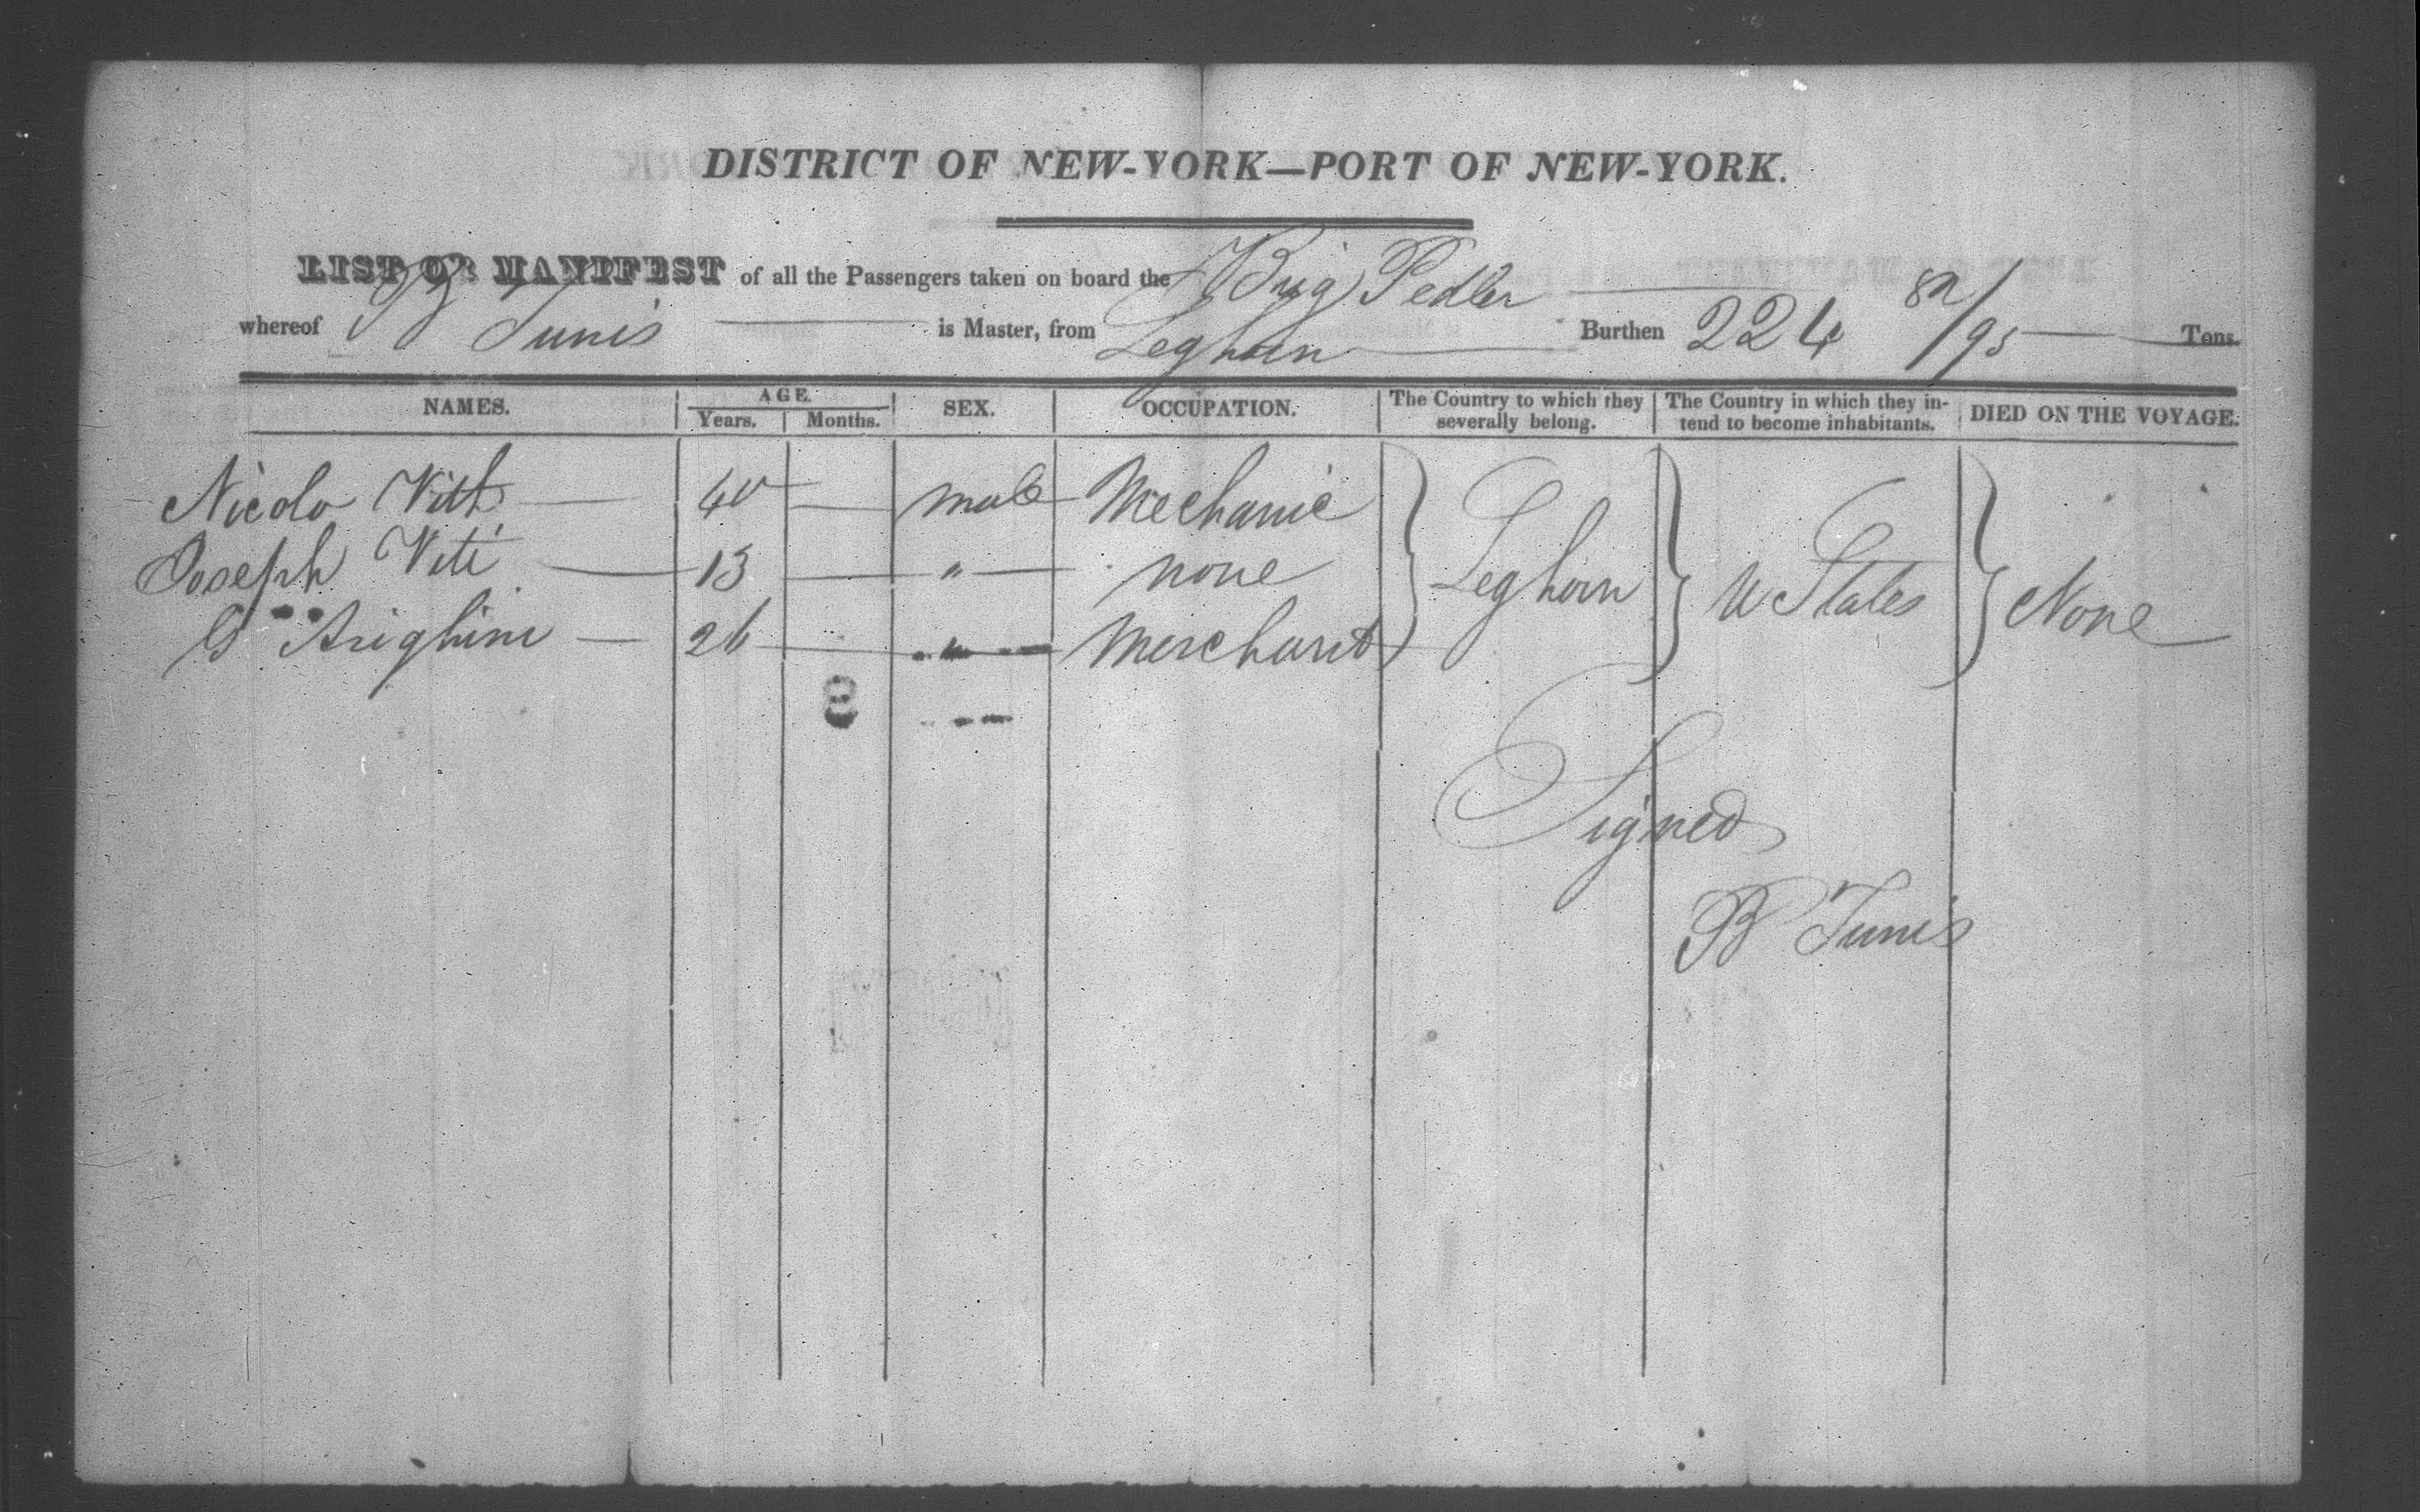 DISTRICT OF NEW-YORK—PORT OF NEW-YORK.
LIST OR MANIFEST of all the Passengers taken on board the Brig Pedler
whereof B Tunis is Master, from Leghorn Burthen 224 82/95 Tons.
NAMES. AGE. Years. Months. SEX. OCCUPATION. The Country to which they severally belong. The Country in which they intend to become inhabitants. DIED ON THE VOYAGE.
Nicolo 40 male Mechanic
Joseph Viti 13 " none Leghorn U States None
G Arighini 26 " Merchant
Signed
B Tunis